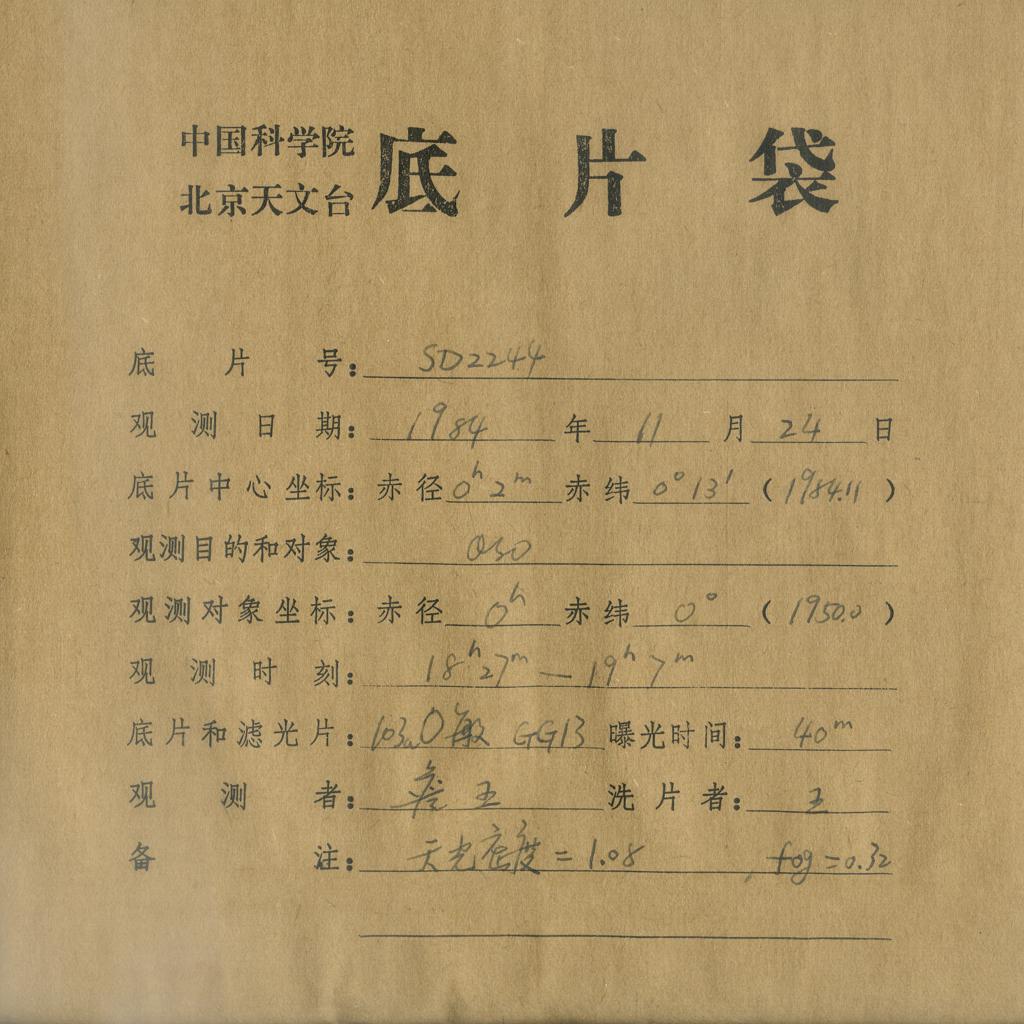 中国科学院
北京天文台 底片袋
底片号: SD2244
观测日期: 1984 年 11 月 24 日
底片中心坐标: 赤径 0ʰ 2ᵐ 赤纬 0° 13′ (1984.11)
观测目的和对象: QSO
观测对象坐标: 赤径 0ʰ 赤纬 0° (1950.0)
观测时刻: 18ʰ27ᵐ — 19ʰ7ᵐ
底片和滤光片: 103aO敏 GG13 曝光时间: 40ᵐ
观测者: 詹 王 洗片者: 王
备注: 天光密度=1.08 , fog=0.32